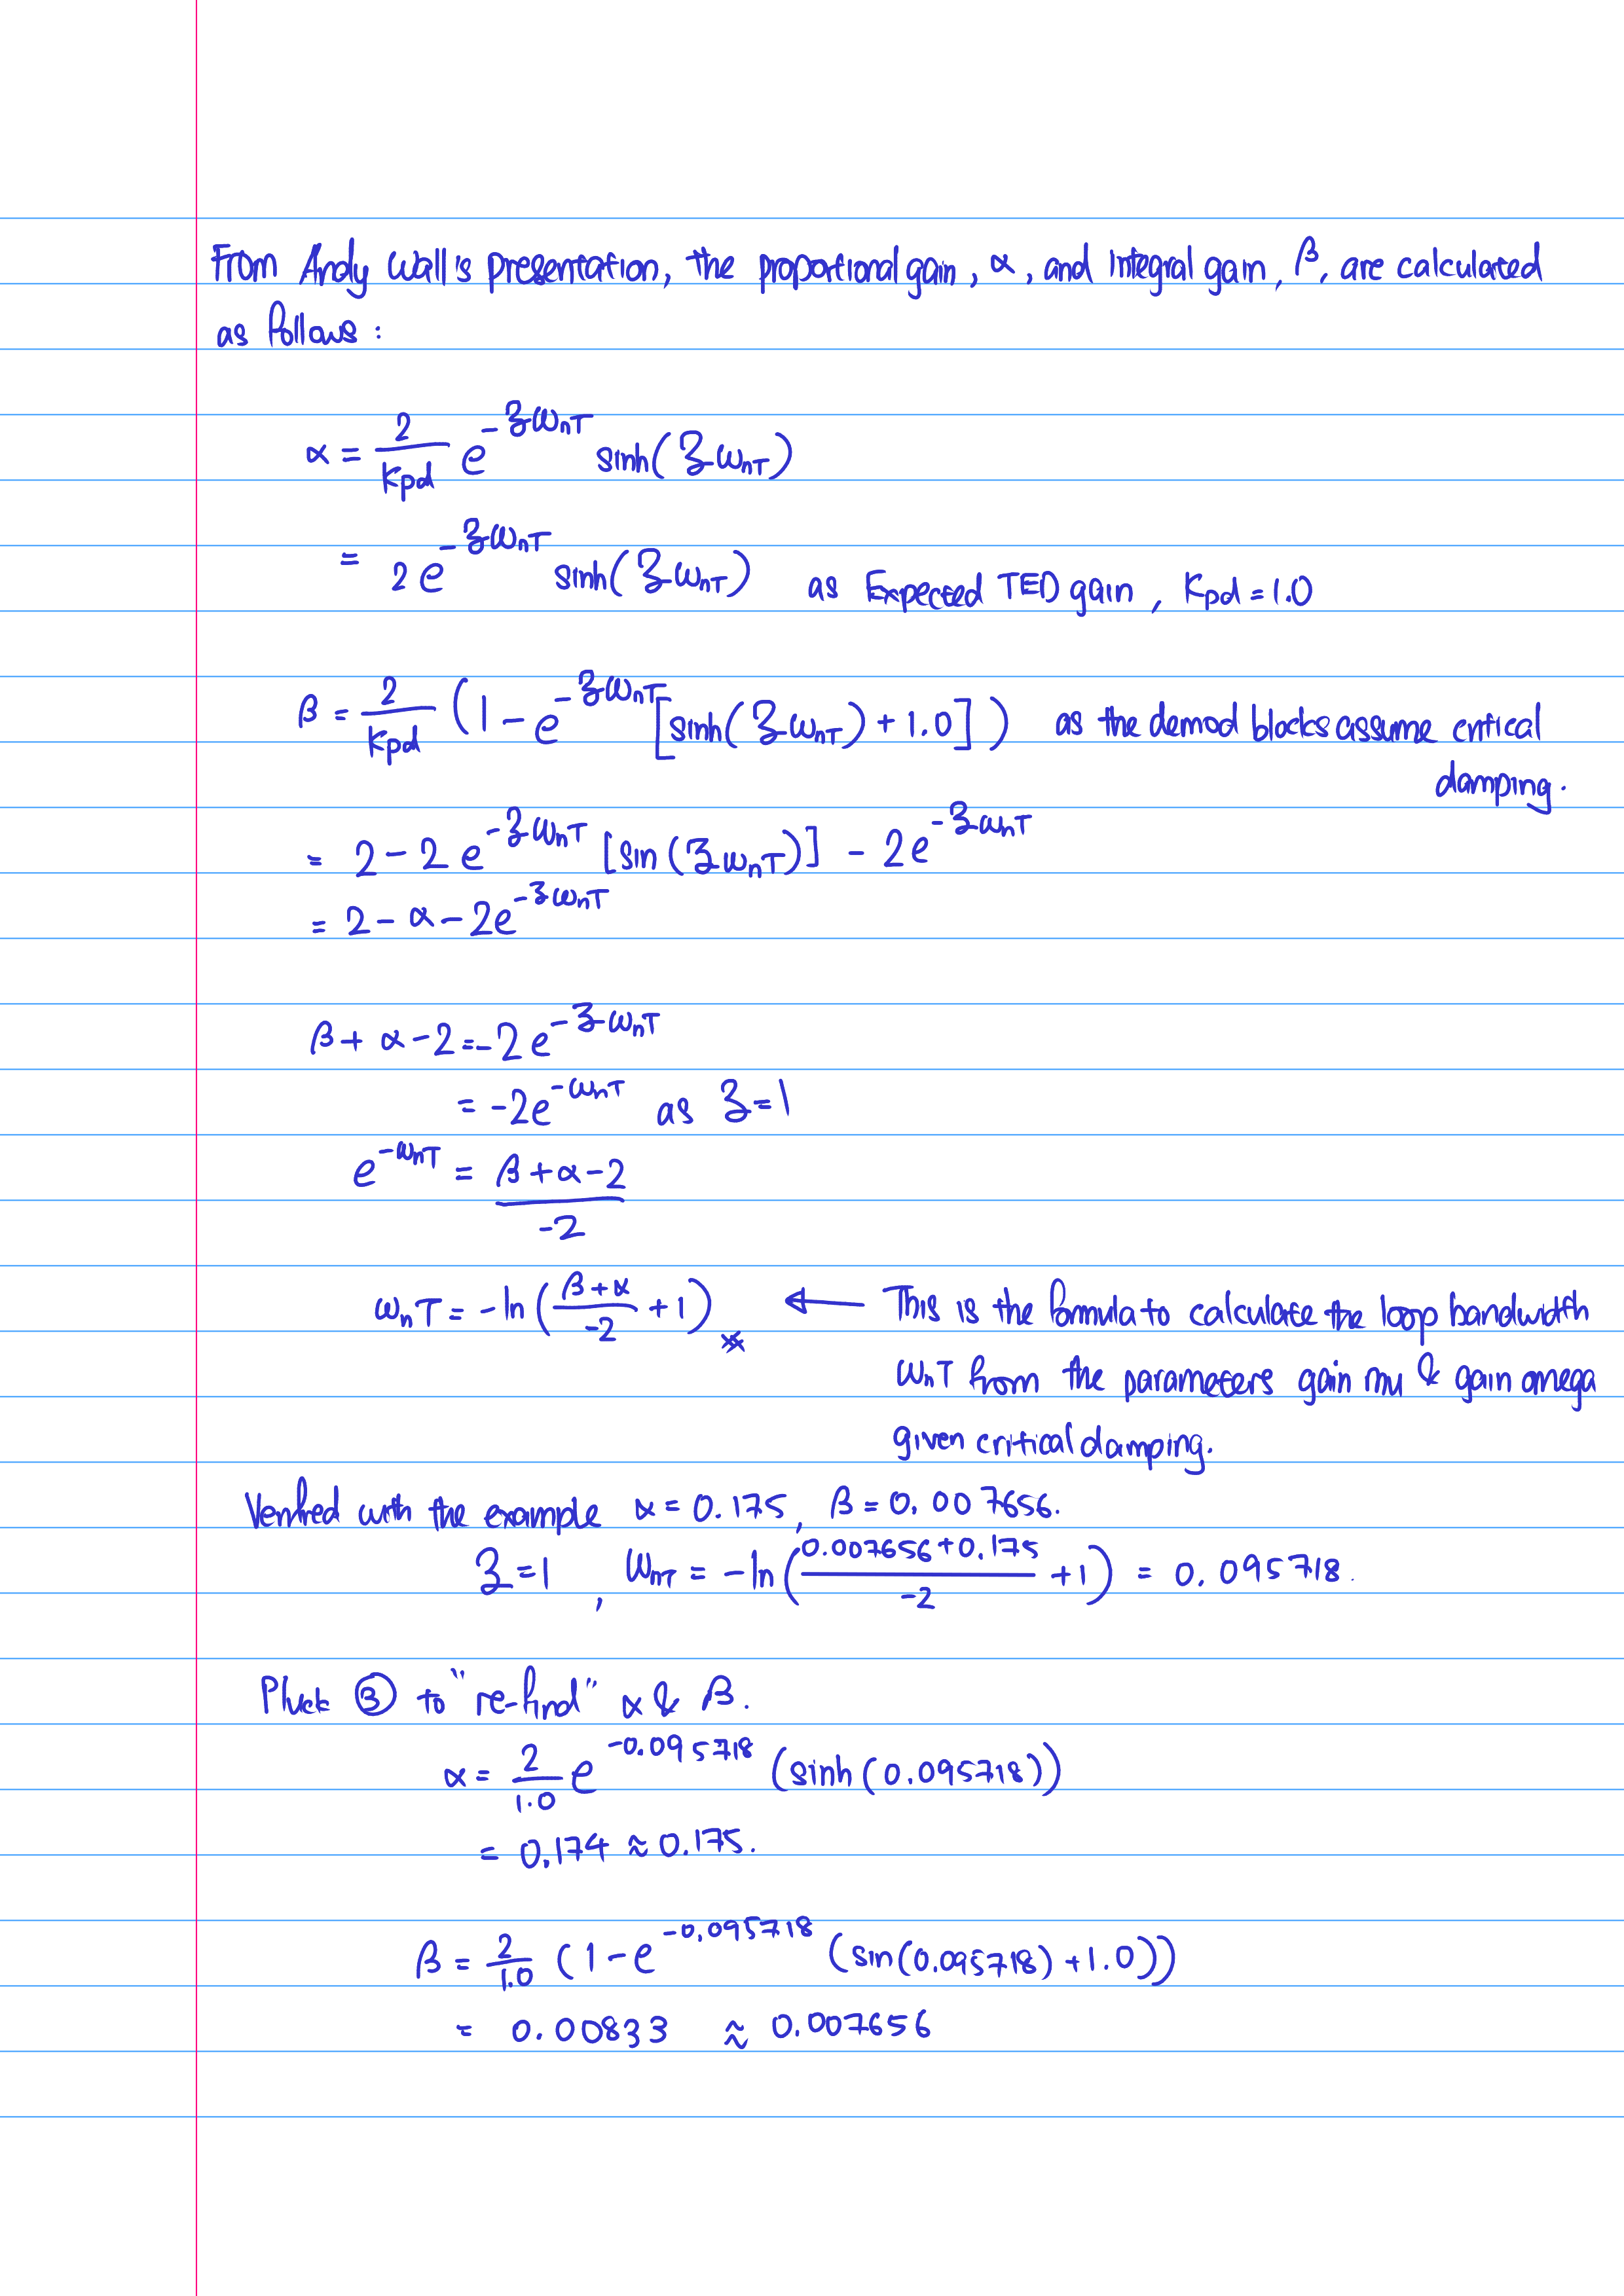 From Andy Wall's presentation, the propotional gain, α, and integral gain, β, are calculated
as follows :
α = 2/Kpd e^(-ξωnT) sinh(ξωnT)
= 2e^(-ξωnT) sinh(ξωnT) as Expected TED gain, Kpd = 1.0
β = 2/Kpd (1 - e^(-ξωnT) [sinh(ξωnT) + 1.0]) as the demod blocks assume critical
damping.
= 2 - 2e^(-ξωnT) [sin(ξωnT)] - 2e^(-ξωnT)
= 2 - α - 2e^(-ξωnT)
β + α - 2 = -2e^(-ξωnT)
= -2e^(-ωnT) as ξ = 1
e^(-ωnT) = (β + α - 2)/-2
ωnT = -ln((β + α)/-2 + 1) ← This is the formula to calculate the loop bandwidth
ωnT from the parameters gain mu & gain omega
given critical damping.
Verified with the example α = 0.175, β = 0.007656.
ξ = 1, ωnT = -ln((0.007656 + 0.175)/-2 + 1) = 0.095718.
③ to "re-find" α & β.
α = 2/1.0 e^(-0.095718) (sinh(0.095718))
= 0.174 ≈ 0.175.
β = 2/1.0 (1 - e^(-0.095718) (sin(0.095718) + 1.0))
= 0.00833 ≈ 0.007656